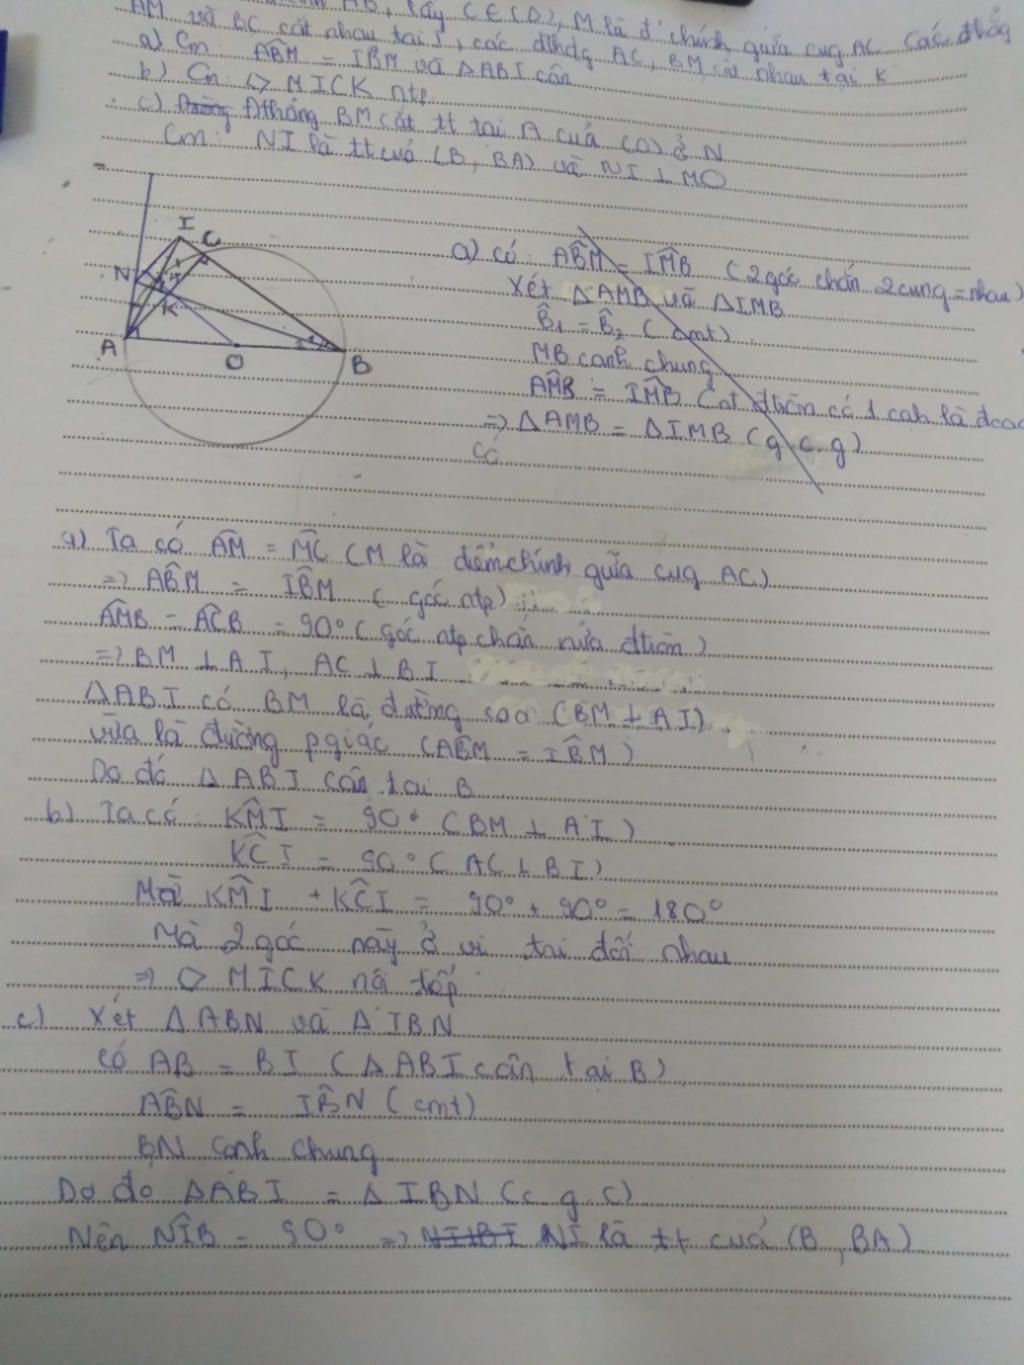 AB, lấy C ∈ (O), M là đ' chính giữa cug AC. Các đthẳg
AM và BC cắt nhau tại I, các đthẳg AC, BM cắt nhau tại K
a) Cm: ABM = IBM và ΔABI cân
b) Cm: MICK ntp
c) Đthẳng BM cắt tt tại A của (O) ở N
Cm: NI là tt của (B, BA) và NI ⊥ MO
I C
N
K
A O B
a) có: ABM = IMB (2 góc chắn 2 cung = nhau)
Xét ΔAMB và ΔIMB
B̂₁ = B̂₂ (cmt)
MB cạnh chung
AMB = IMB
=> ΔAMB = ΔIMB (g.c.g)
Có
a) Ta có AM = MC (M là điểm chính giữa cug AC)
=> ABM = IBM (góc ntp)
AMB = ACB = 90° (góc ntp chắn nửa đtròn)
=> BM ⊥ AI, AC ⊥ BI
ΔABI có BM là đường cao (BM ⊥ AI)
vừa là đường pgiác (ABM = IBM)
Do đó ΔABI cân tại B
b) Ta có: KMI = 90° (BM ⊥ AI)
KCI = 90° (AC ⊥ BI)
Mà KMI + KCI = 90° + 90° = 180°
Mà 2 góc này ở vị trí đối nhau
=> MICK nội tiếp
c) Xét ΔABN và ΔIBN
có AB = BI (ΔABI cân tại B)
ABN = IBN (cmt)
BN cạnh chung
Do đo ΔABI = ΔIBN (c.g.c)
Nên NIB = 90° => NI là tt của (B, BA)